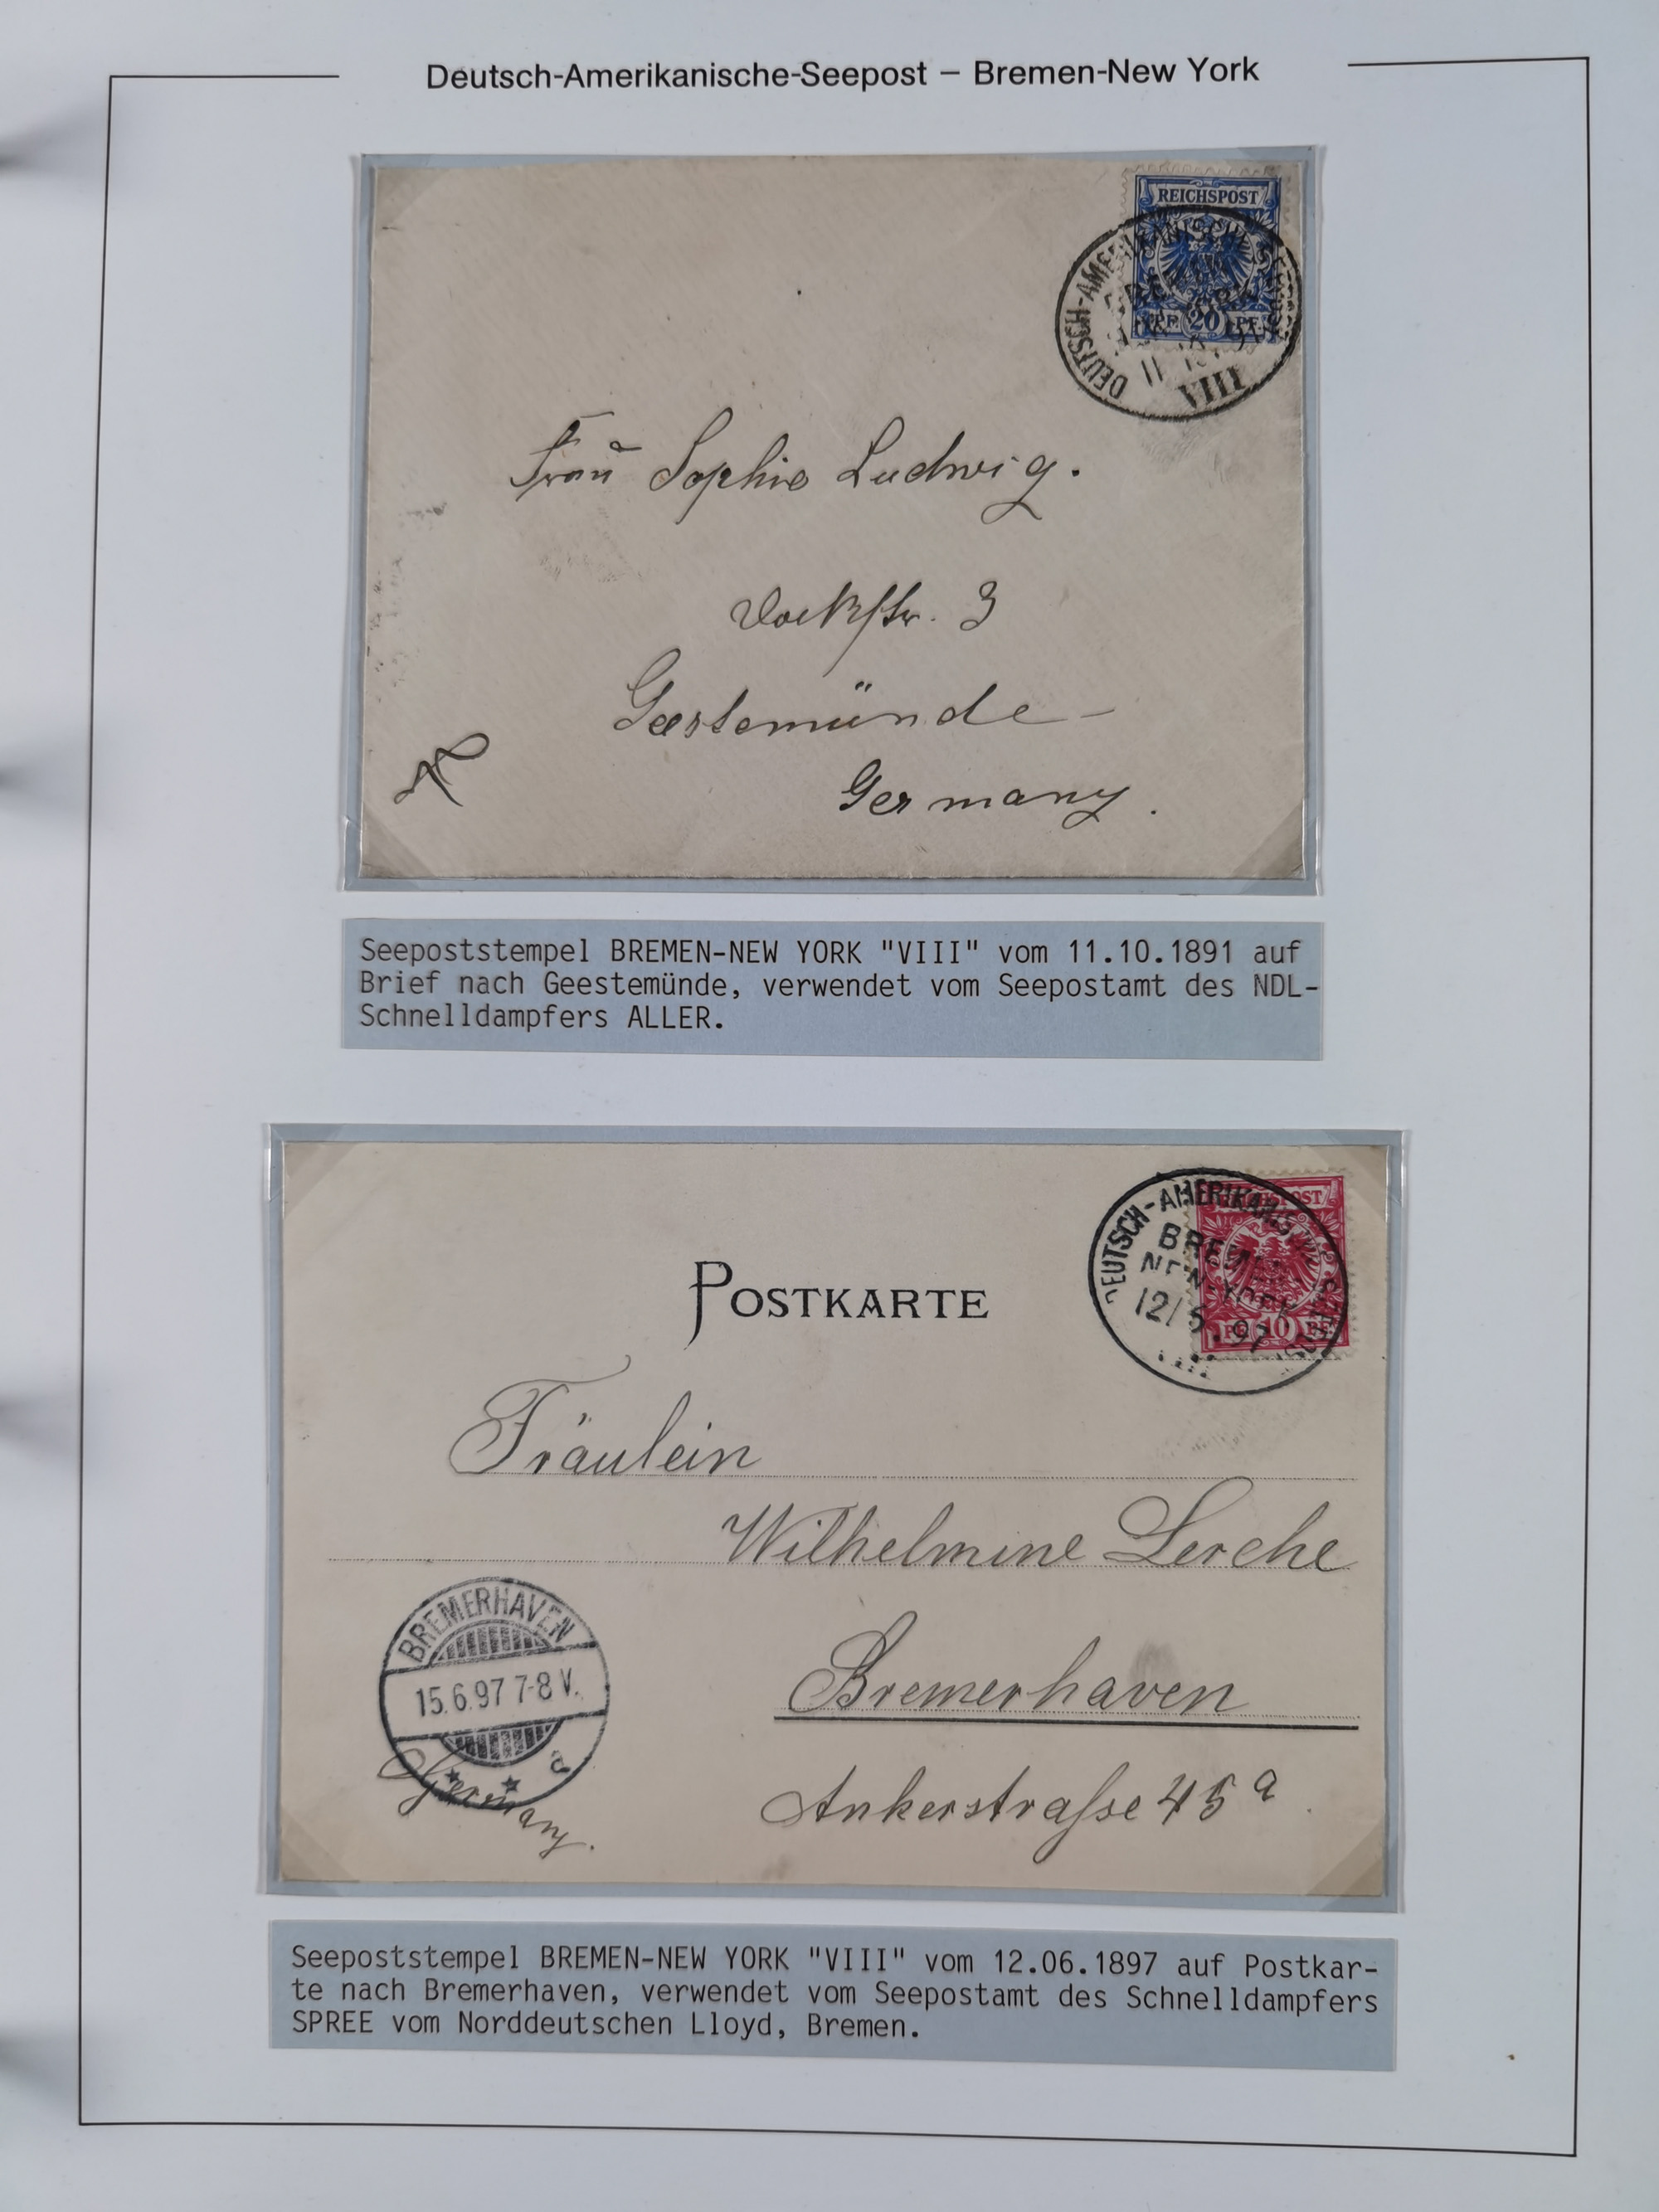 Deutsch-Amerikanische-Seepost – Bremen-New York
REICHSPOST
DEUTSCH-AMERIKANISCHE
PF. 20 PF.
VIII
Frau Sophie Ludwig.
Dockstr. 3
Geestemünde -
Germany.
Seepoststempel BREMEN-NEW YORK "VIII" vom 11.10.1891 auf
Brief nach Geestemünde, verwendet vom Seepostamt des NDL-
Schnelldampfers ALLER.
REICHSPOST
DEUTSCH-AMERIKANISCHE
BREMEN
NEW-YORK
12/6.97
PF 10 PF.
POSTKARTE
Fräulein
Wilhelmine Lerche
BREMERHAVEN
15.6.97 7-8 V.
a
Bremerhaven
Germany.
Ankerstraſse 45 a
Seepoststempel BREMEN-NEW YORK "VIII" vom 12.06.1897 auf Postkar-
te nach Bremerhaven, verwendet vom Seepostamt des Schnelldampfers
SPREE vom Norddeutschen Lloyd, Bremen.